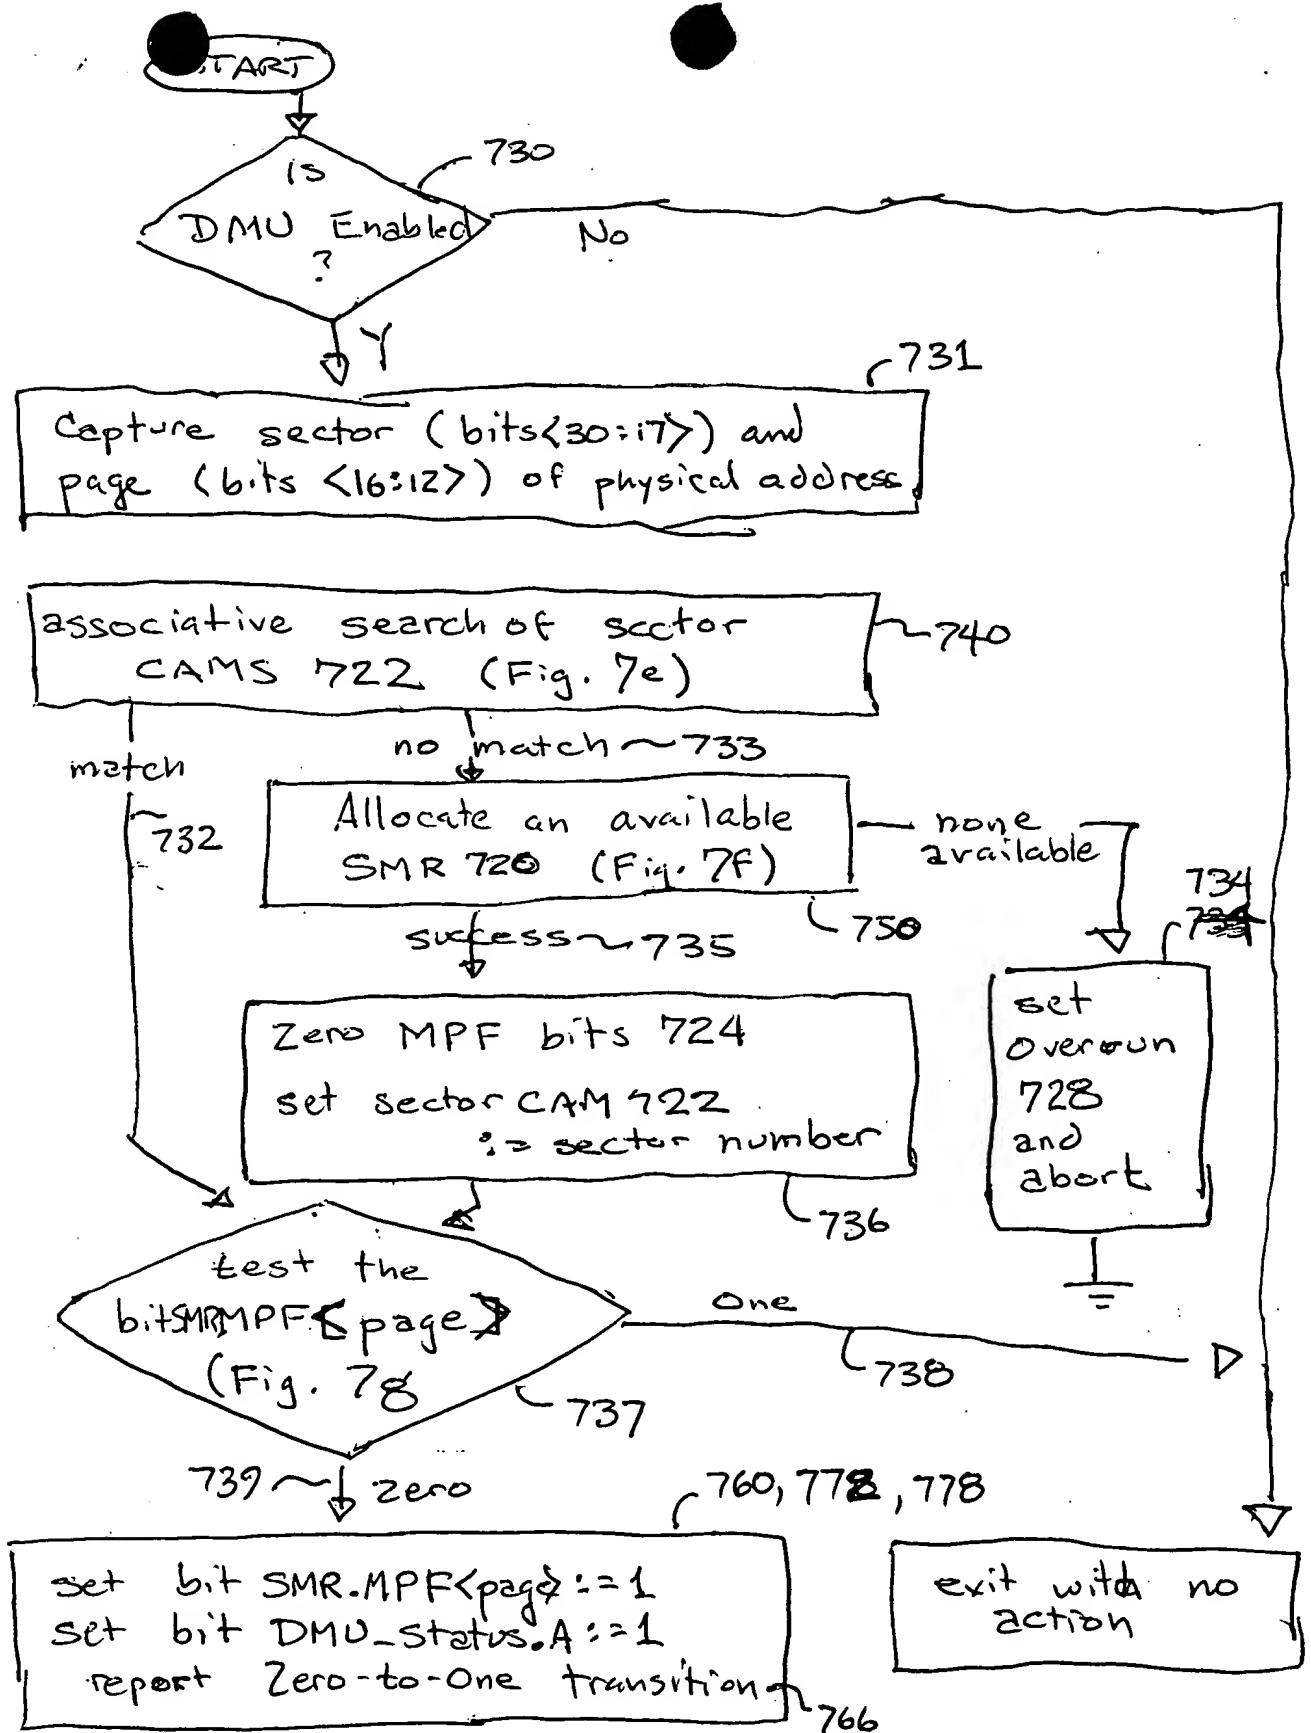 START
730
is
DMU Enabled
?
No
Y
731
Capture sector (bits<30:17>) and
page (bits <16:12>) of physical address
associative search of sector
CAMS 722 (Fig. 7e)
740
match
no match 733
732
Allocate an available
SMR 720 (Fig. 7f)
none
available
750
734
success 735
Zero MPF bits 724
set sector CAM 722
:= sector number
736
set
overrun
728
and
abort
test the
bit SMR.MPF<page>
(Fig. 7g
737
One
738
739
zero
760, 772, 778
set bit SMR.MPF<page> := 1
set bit DMU_Status.A := 1
report Zero-to-One transition
766
exit with no
action